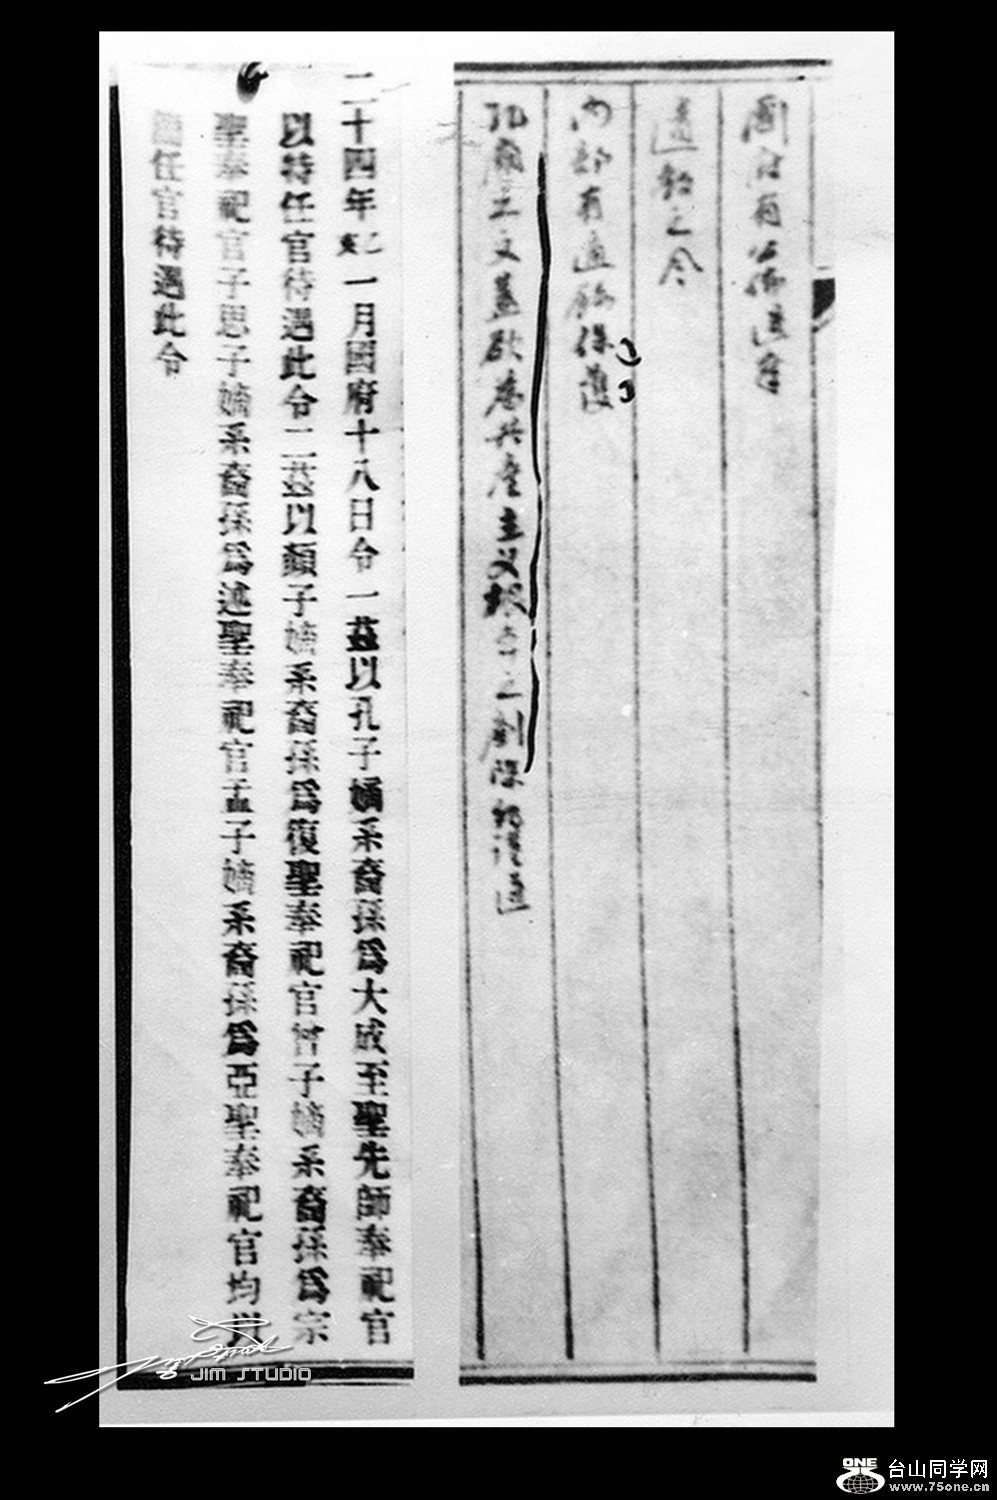 國府有公布遺產
遺教之令
內部有通飭保護
孔廟之文蓋欲為共產主义
二十四年 一月國府十八日令一茲以孔子嫡系裔孫爲大成至聖先師奉祀官
以特任官待遇此令二茲以顏子嫡系裔孫爲復聖奉祀官曾子嫡系裔孫爲宗
聖奉祀官子思子嫡系裔孫爲述聖奉祀官孟子嫡系裔孫爲亞聖奉祀官均以
任官待遇此令
JIM STUDIO
ONE
台山同学网
www.75one.cn